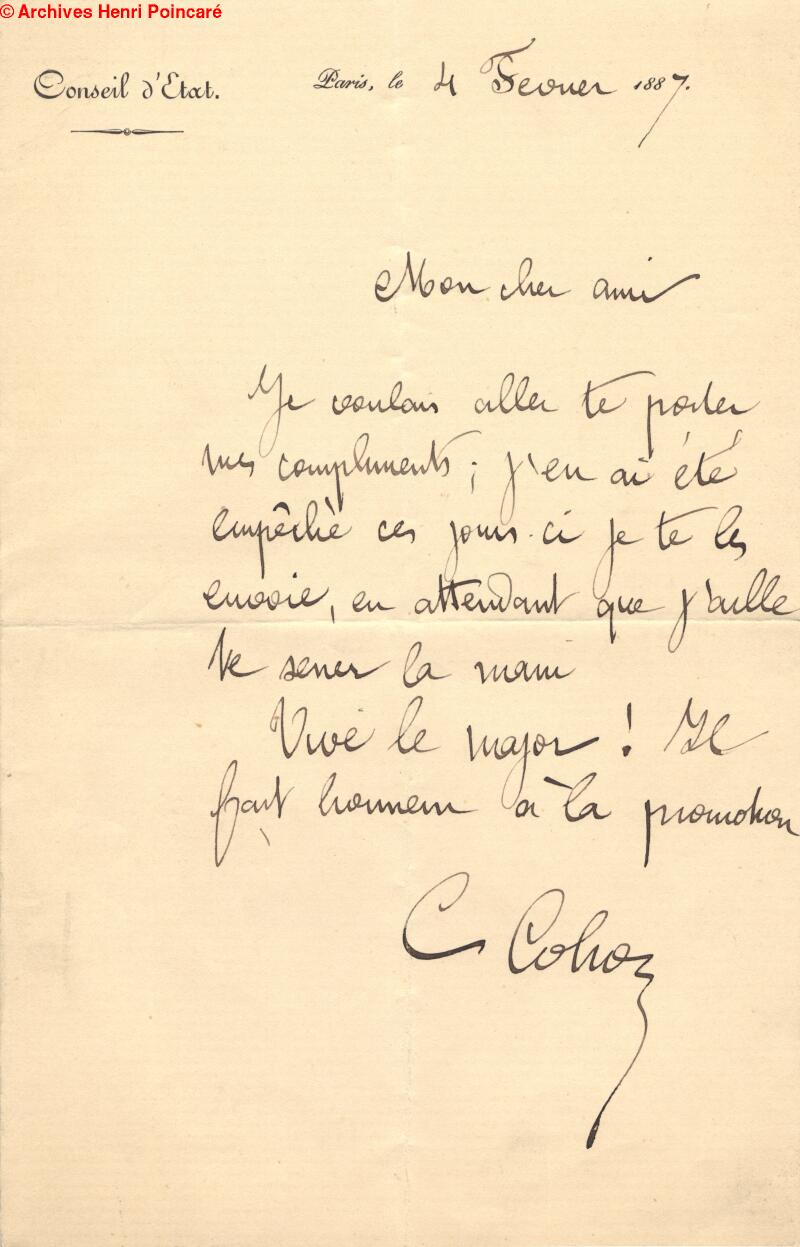 © Archives Henri Poincaré
Conseil d'Etat. Paris, le 4 Fevrier 1887.
Mon cher ami
Je voulais aller te porter
mes compliments ; j'en ai été
empêché ces jours-ci je te les
envoie, en attendant que j'aille
te serrer la main
Vive le major ! Il
fait honneur à la promotion
C Colson